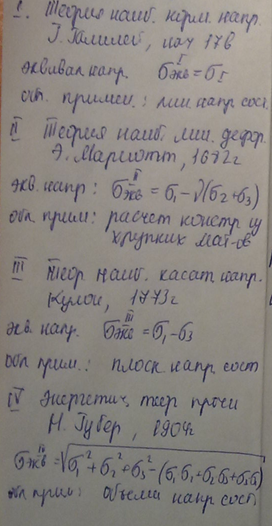 I. Теория наиб. норм. напр.
Г. Галилей, нач 17в
эквивал напр. σэкв^I = σ1
обл. примен.: лин напр сост.
II Теория наиб. лин. дефор.
Э. Мариотт, 1682г
экв. напр: σэкв^II = σ1 - ν(σ2 + σ3)
обл прим: расчет констр из
хрупких мат-ов
III Теор наиб. касат напр.
Кулон, 1773г
экв. напр. σэкв^III = σ1 - σ3
обл прим.: плоск напр сост
IV Энергетич. теор прочн
Н. Губер, 1904
σэкв^IV = √σ1² + σ2² + σ3² - (σ1σ2 + σ2σ3 + σ3σ1)
обл прим: объемн напр сост